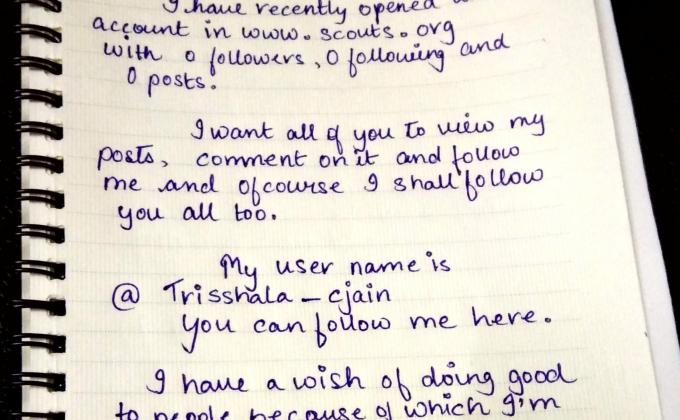 I have recently opened a
account in www.scouts.org
with 0 followers, 0 following and
0 posts.
I want all of you to view my
posts, comment on it and follow
me and ofcourse I shall follow
you all too.
My user name is
@ Trisshala_cjain
You can follow me here.
I have a wish of doing good
to people because of which I'm